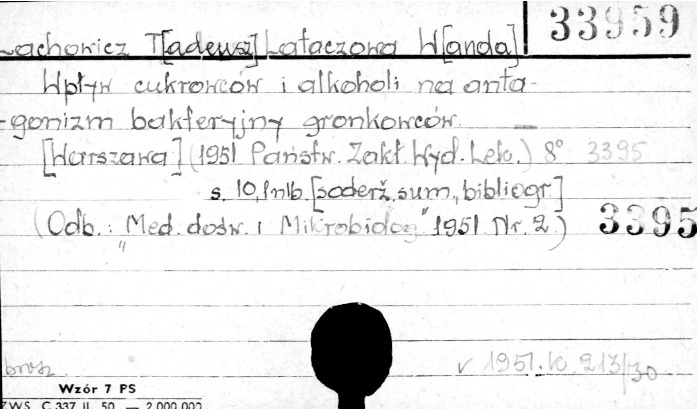 33959
Lachowicz T[adeusz] Lataczowa W[anda]
Wpływ cukrowców i alkoholi na anta-
gonizm bakteryjny gronkowców.
[Warszawa] (1951 Państw. Zakł. Wyd. Lek.) 8° 3395
s. 10, 1 nlb. [soderž. sum., bibliogr.]
(Odb.: "Med. dośw. i Mikrobiolog" 1951 Nr. 2.) 3395
brosz. v 1951.K 213/30
Wzór 7 PS
ZWS C 337 II. 50. — 2.000.000